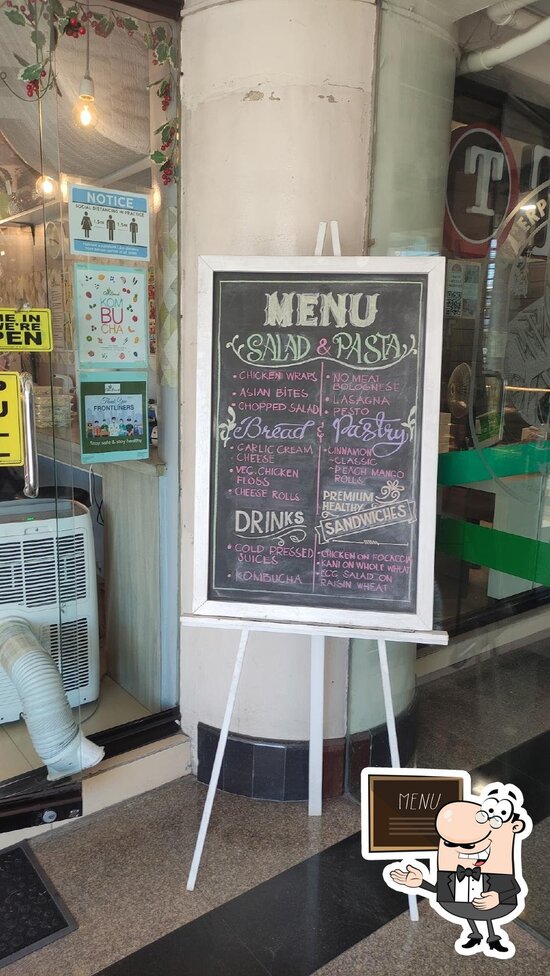 NOTICE
SOCIAL DISTANCING IN PRACTICE
1.5m 1.5m
KOM
BU
CHA
Thank You
FRONTLINERS
Stay safe & stay healthy
WE'RE
PEN
MENU
SALAD & PASTA
• CHICKEN WRAPS
• ASIAN BITES
• CHOPPED SALAD
• NO MEAT
BOLOGNESE
• LASAGNA
• PESTO
Bread & Pastry
• GARLIC CREAM
CHEESE
• VEG. CHICKEN
FLOSS
• CHEESE ROLLS
• CINNAMON
~ CLASSIC
~ PEACH MANGO
ROLLS
DRINKS
• COLD PRESSED
JUICES
• KOMBUCHA
PREMIUM
HEALTHY
SANDWICHES
• CHICKEN ON FOCACCIA
• KANI ON WHOLE WHEAT
• EGG SALAD ON
RAISIN WHEAT
T
MENU